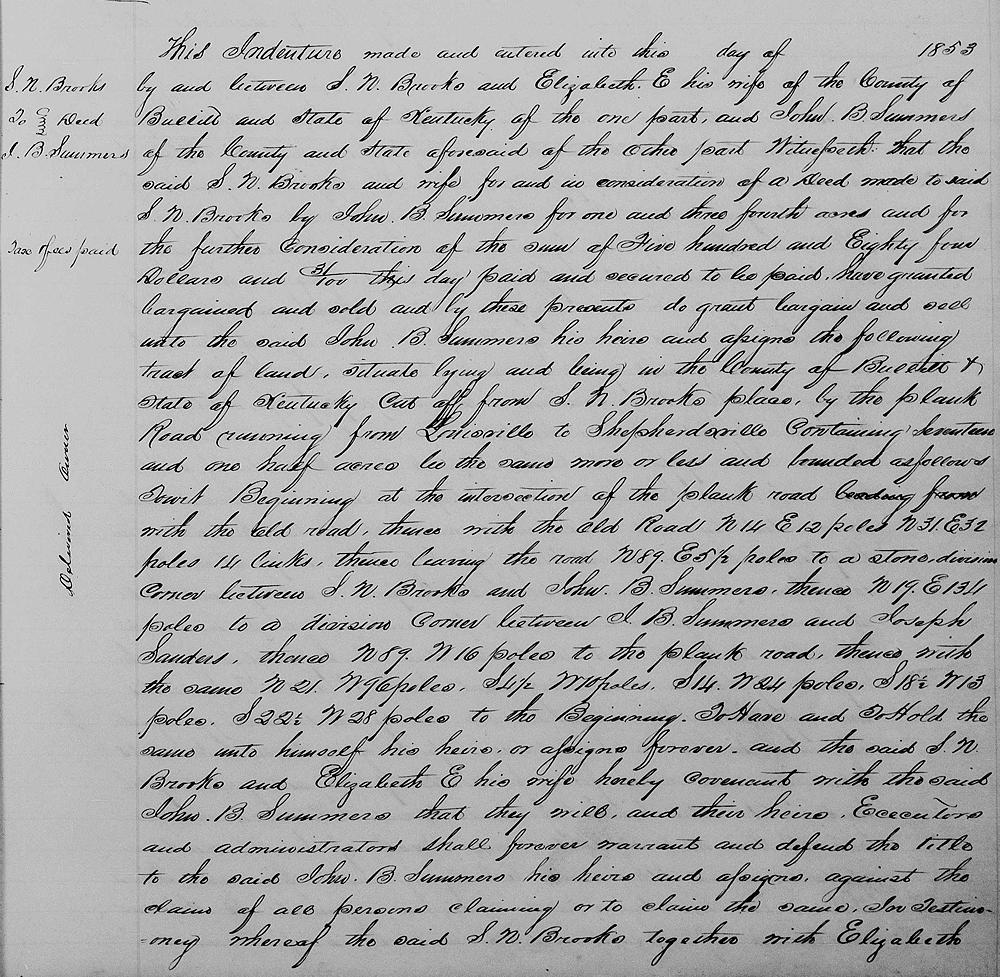 This Indenture made and entered into this day of 1853
S. N. Brooks
To Deed
J. B. Summers
Tax & fees paid
Delivered Owner
by and between S. N. Brooks and Elizabeth. E his wife of the County of
Bullitt and State of Kentucky of the one part, and John. B. Summers
of the County and State aforesaid of the other part Witnesseth: that the
said S. N. Brooks and wife for and in consideration of a Deed made to said
S. N. Brooks by John. B. Summers for one and three fourth acres and for
the further Consideration of the sum of Five hundred and Eighty four
Dollars and 31/100 this day paid and secured to be paid. have granted
bargained and sold and by these presents do grant bargain and sell
unto the said John. B. Summers his heirs and assigns the following
tract of land, situate lying and being in the County of Bullitt &
State of Kentucky Cut off from S. N. Brooks place, by the plank
Road running from Louisville to Shepherdsville Containing Seventeen
and one half acres be the same more or less and bounded as follows
Towit Beginning at the intersection of the plank road leading from
with the old road, thence with the old Road N14 E 12 poles N31 E32
poles 14 links, thence leaving the road N89. E5½ poles to a stone, division
Corner between S. N. Brooks and John. B. Summers, thence N19. E134
poles to a division Corner between J. B. Summers and Joseph
Sanders, thence N89. W16 poles to the plank road, thence with
the same N 21. W96 poles, S4½ W10 poles. S14. W24 poles, S18½ W13
poles. S22½ W28 poles to the Beginning. To Have and To Hold the
same unto himself his heirs, or assigns forever. and the said S. N.
Brooks and Elizabeth E his wife hereby covenant with the said
John. B. Summers that they will, and their heirs, Executors
and administrators shall forever warrant and defend the title
to the said John. B. Summers his heirs and assigns, against the
claim of all persons claiming or to claim the same. In Testim-
-ony whereof the said S. N. Brooks together with Elizabeth